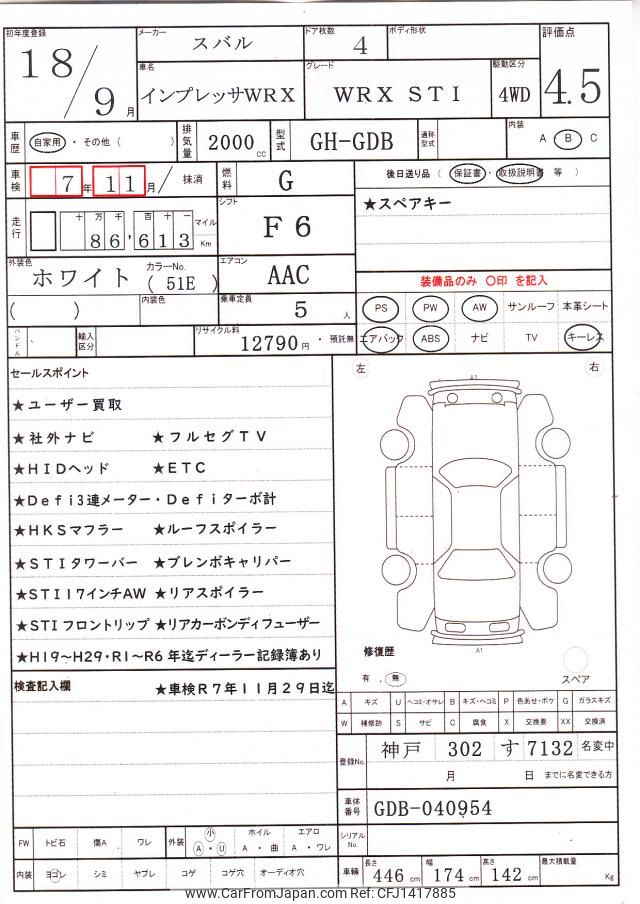 初年度登録 18/9月
メーカー スバル
ドア枚数 4
ボディ形状
評価点 4.5
車名 インプレッサWRX
グレード WRX STI
駆動区分 4WD
車歴 自家用・その他( )
排気量 2000cc
型式 GH-GDB
通称型式
内装 A B C
車検 7年11月/ 抹消
燃料 G
後日送り品(保証書・取扱説明書 等)
★スペアキー
走行 十万千百十一 86,613 マイル Km
シフト F6
外装色 ホワイト
カラーNo. (51E)
エアコン AAC
装備品のみ 〇印 を記入
( )
内装色
乗車定員 5人
PS PW AW サンルーフ 本革シート
ハンドル
輸入区分
リサイクル料 12790円・預託無
エアバック ABS ナビ TV キーレス
セールスポイント
左 右
A1
★ユーザー買取
★社外ナビ ★フルセグTV
★HIDヘッド ★ETC
★Defi3連メーター・Defiターボ計
★HKSマフラー ★ルーフスポイラー
★STIタワーバー ★ブレンボキャリパー
★STI17インチAW ★リアスポイラー
★STIフロントリップ ★リアカーボンディフューザー
★H19~H29・R1~R6 年迄ディーラー記録簿あり
修復歴
有 . 無
A1
スペア
検査記入欄 ★車検R7年11月29日迄
A キズ U ヘコミ・オサレ B キズ・ヘコミ P 色あせ・ボケ G ガラスキズ
W 補修跡 S サビ C 腐食 X 交換要 XX 交換済
登録No. 神戸 302 す7132 名変中
月 日 までに名変できる方
車体番号 GDB-040954
シリアルNo.
FW トビ石 傷A ワレ 外装 小 A・U ホイル A・曲 エアロ A・ワレ
内装 ヨゴレ シミ ヤブレ コゲ コゲ穴 オーディオ穴
車輌 長さ 446cm 幅 174cm 高さ 142cm 最大積載量 Kg
www.CarFromJapan.com Ref: CFJ1417885